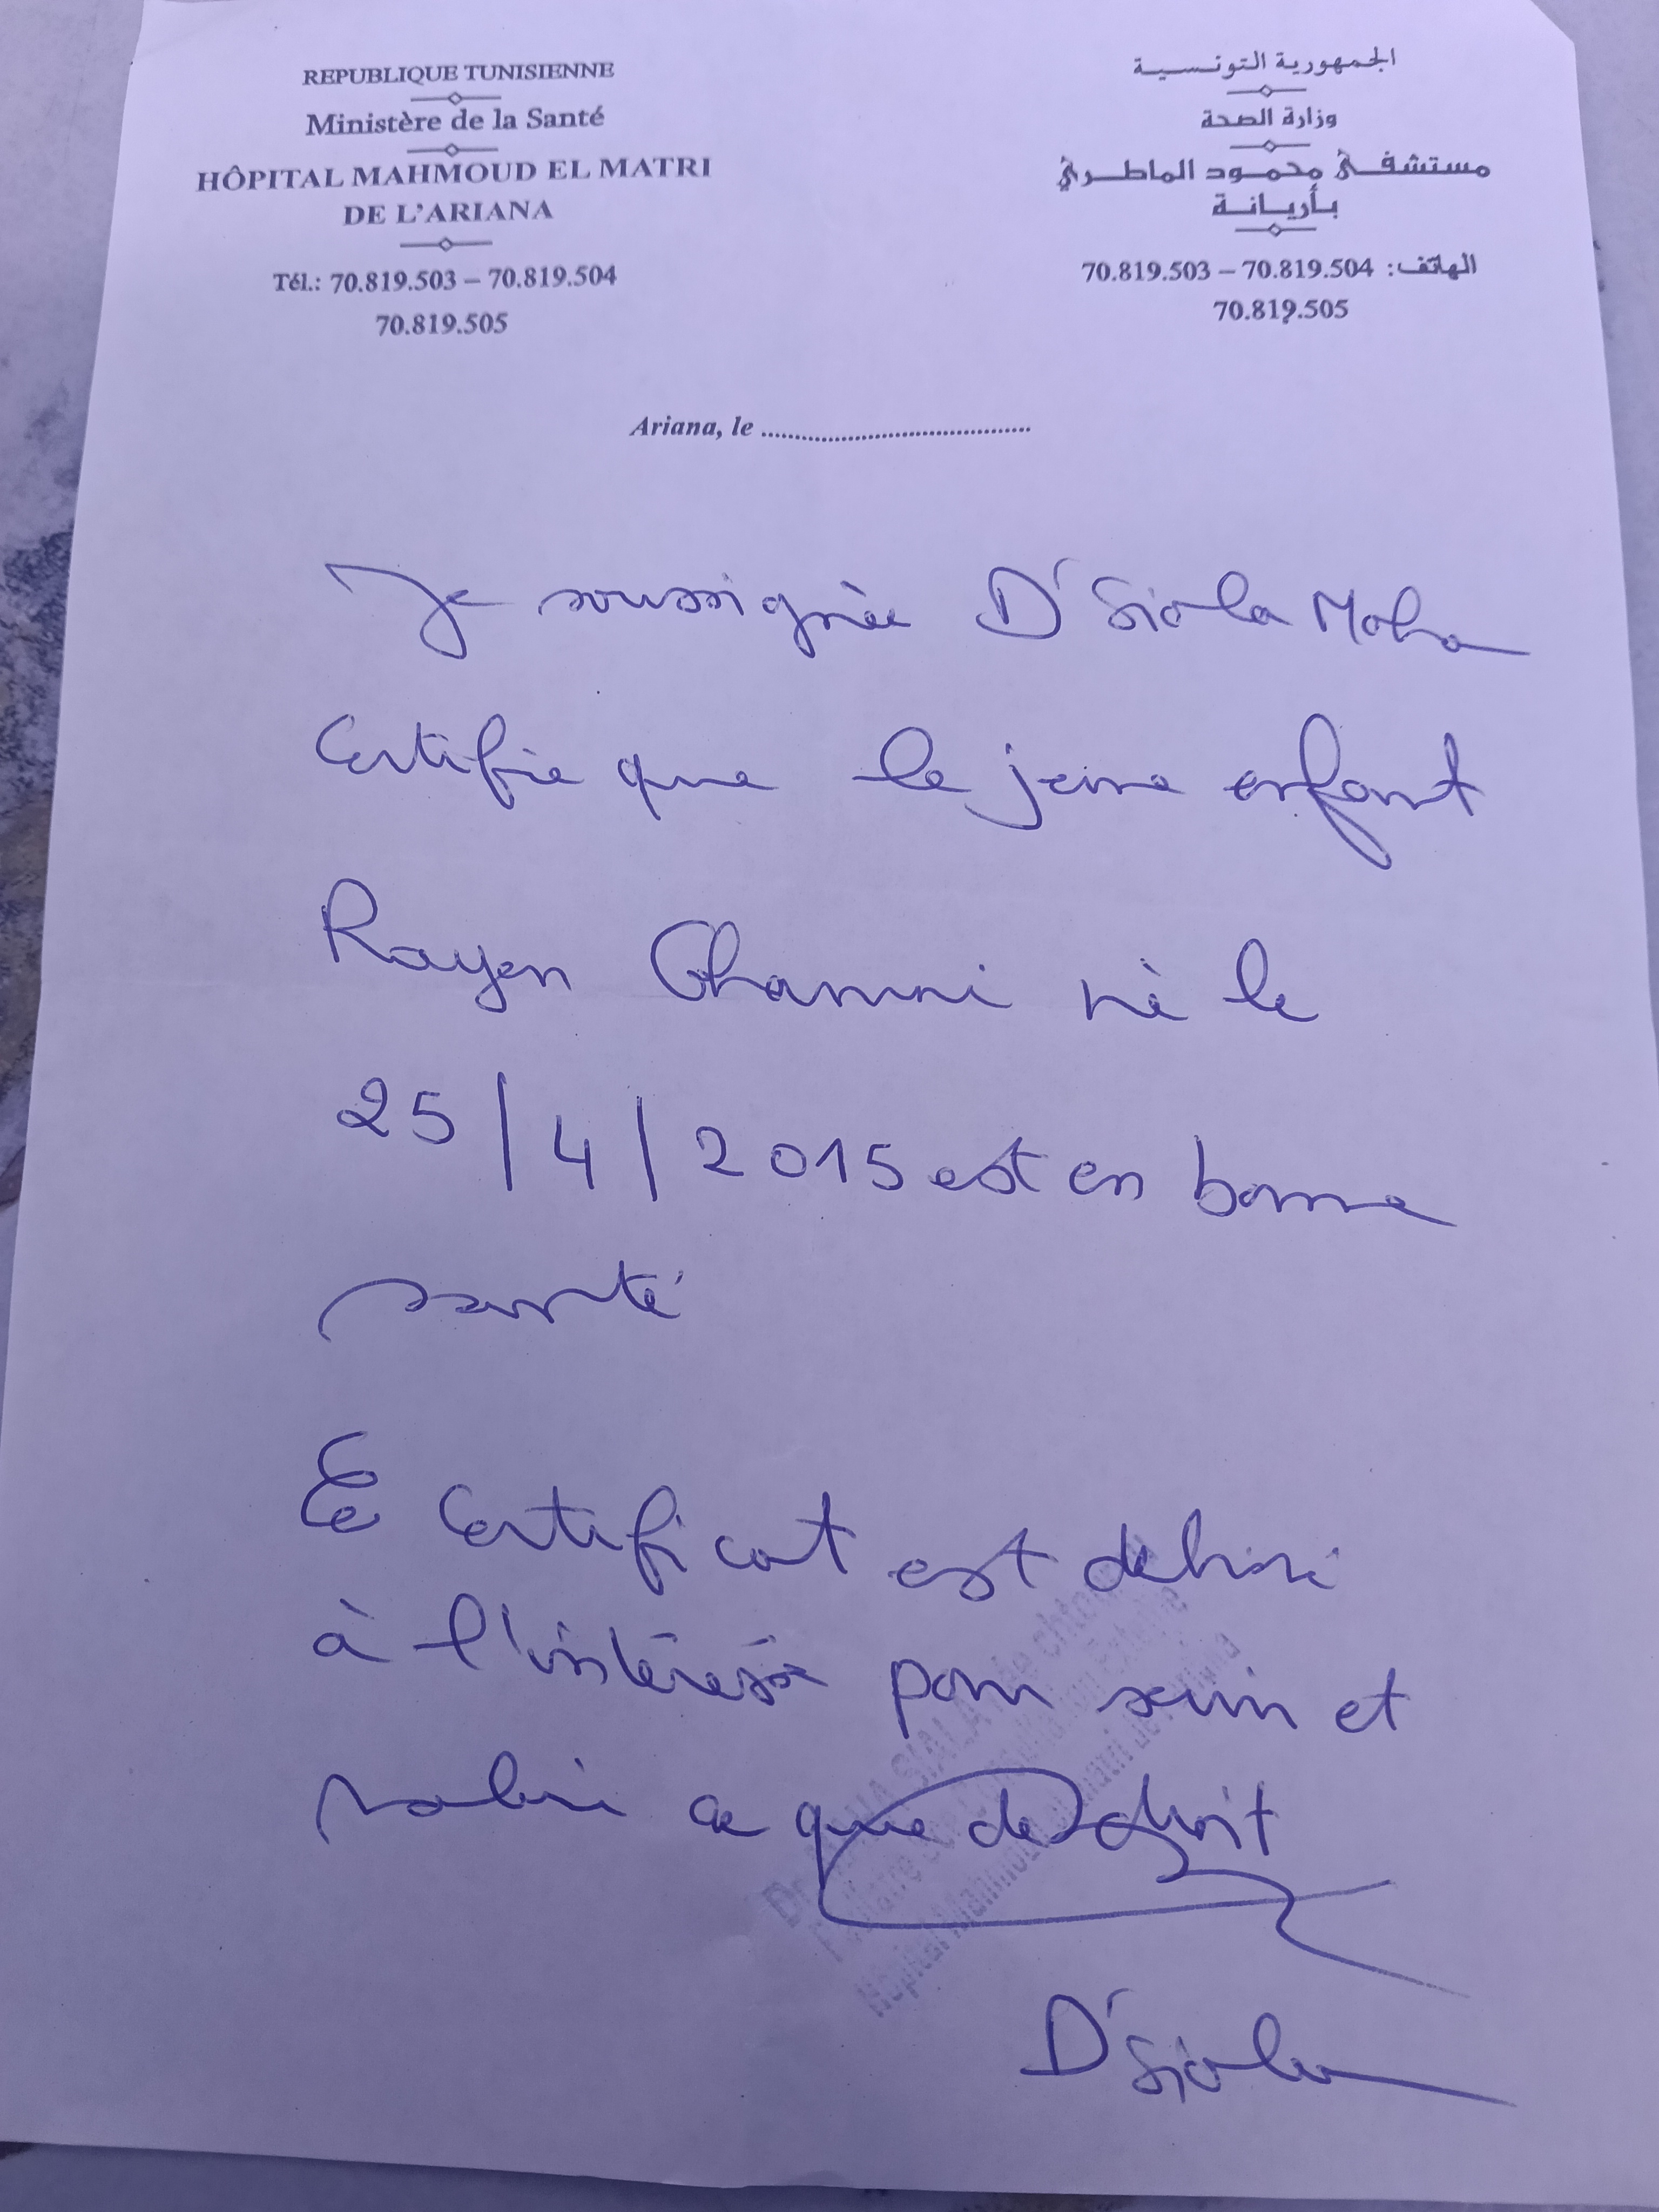 REPUBLIQUE TUNISIENNE
Ministère de la Santé
HÔPITAL MAHMOUD EL MATRI
DE L'ARIANA
Tél.: 70.819.503 – 70.819.504
70.819.505
الجمهورية التونسية
وزارة الصحة
مستشفى محمود الماطري
بأريانة
الهاتف: 70.819.504 – 70.819.503
70.819.505
Ariana, le
Je soussignée Dr Siala Maha
Certifie que le jeune enfant
Rayen Ghanmi né le
25/4/2015 est en bonne
santé
Ce Certificat est délivré
à l'intéressé pour servir et
valoir ce que de droit
Dr SIALA
Hôpital Mahmoud
Dr Siala